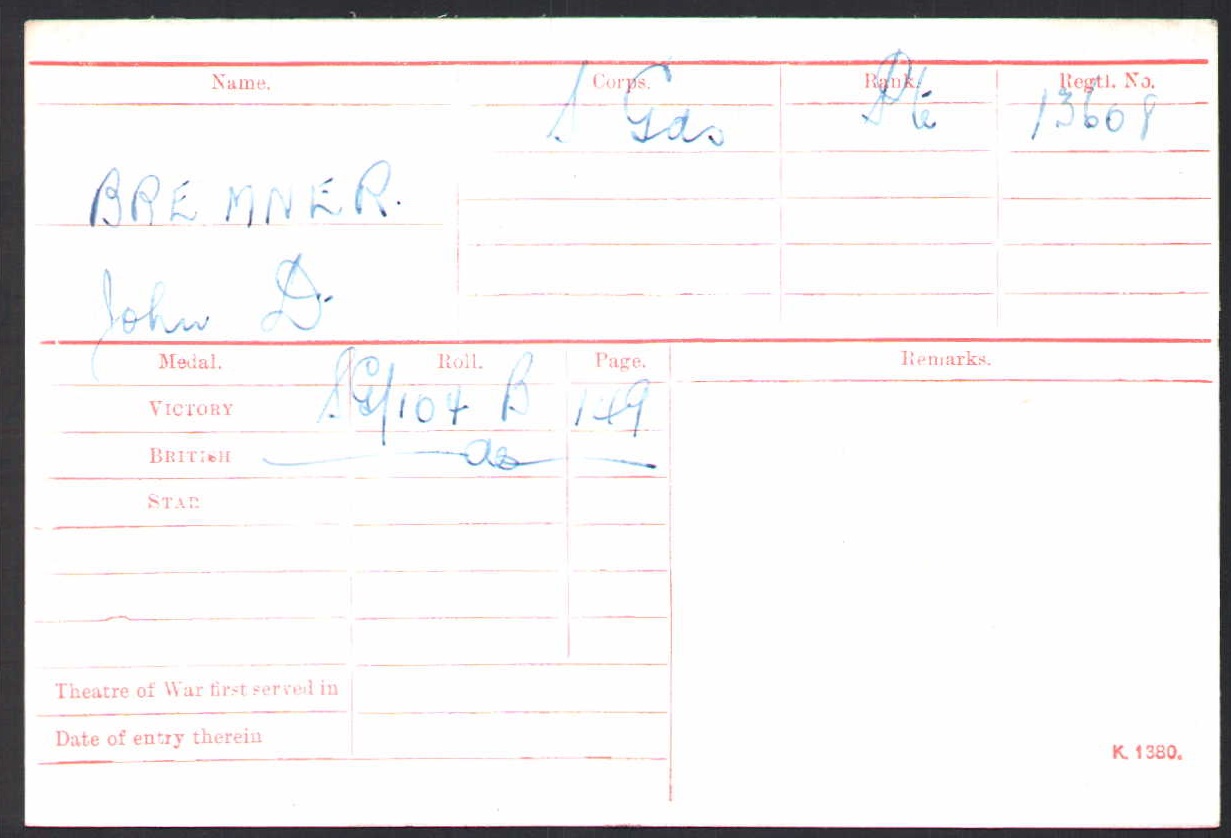 Name. Corps. Rank. Regtl. No.
S Gds Pte 13608
BREMNER.
John D.
Medal. Roll. Page. Remarks.
VICTORY SG/104 B 149
BRITISH — do —
STAR
Theatre of War first served in
Date of entry therein
K. 1380.